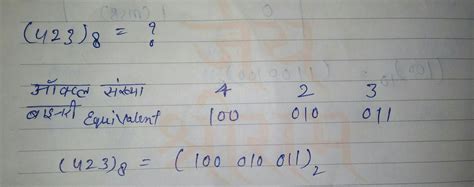 (423)₈ = ?
ऑक्टल संख्या 4 2 3
बाइनरी Equivalent 100 010 011
(423)₈ = (100 010 011)₂